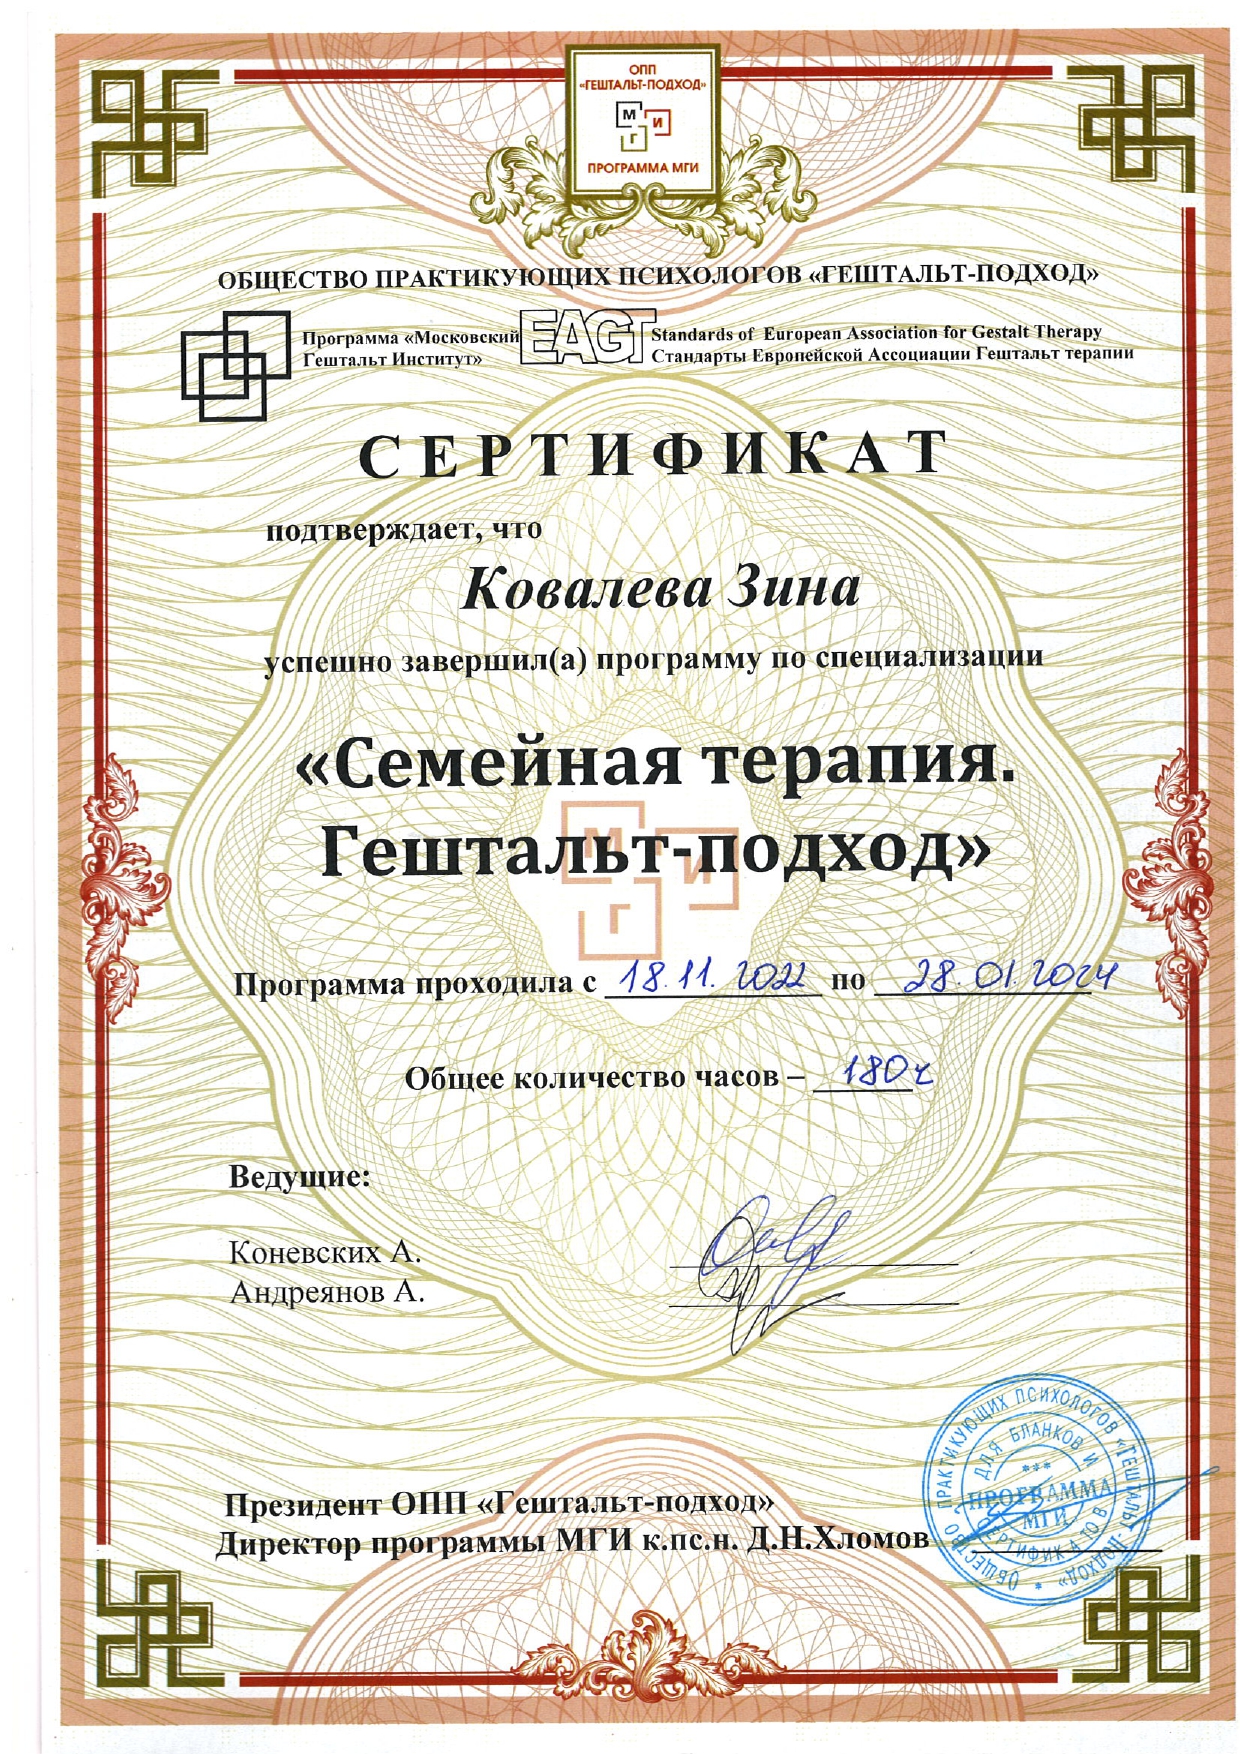 ОПП
«ГЕШТАЛЬТ-ПОДХОД»
М
И
Г
ПРОГРАММА МГИ
ОБЩЕСТВО ПРАКТИКУЮЩИХ ПСИХОЛОГОВ «ГЕШТАЛЬТ-ПОДХОД»
Программа «Московский
Гештальт Институт»
EAGT
Standards of European Association for Gestalt Therapy
Стандарты Европейской Ассоциации Гештальт терапии
СЕРТИФИКАТ
подтверждает, что
Ковалева Зина
успешно завершил(а) программу по специализации
«Семейная терапия.
Гештальт-подход»
М
И
Г
Программа проходила с 18.11.2022 по 28.01.2024
Общее количество часов – 180ч
Ведущие:
Коневских А.
Андреянов А.
Президент ОПП «Гештальт-подход»
Директор программы МГИ к.пс.н. Д.Н.Хломов
ОБЩЕСТВО ПРАКТИКУЮЩИХ ПСИХОЛОГОВ «ГЕШТАЛЬТ-ПОДХОД»
ДЛЯ БЛАНКОВ И
ПРОГРАММА
МГИ
СЕРТИФИКАТОВ